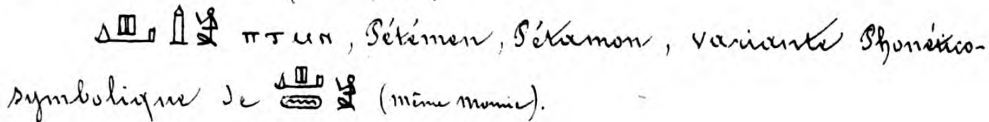 ⲡⲧⲙⲛ, Pétémen, Pétamon, variante Phonético-
symbolique de (même momie).